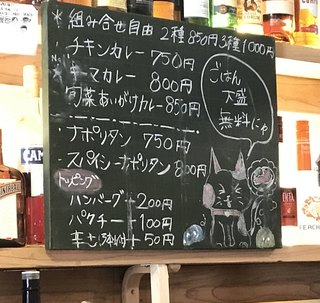 *組み合せ自由 2種850円 3種1000円
チキンカレー 750円
キーマカレー 800円
旬菜あいがけカレー 850円
・ナポリタン 750円
・スパイシーナポリタン 800円
トッピング
ハンバーグ +200円
パクチー +100円
辛さ +50円
ごはん
大盛
無料にゃ